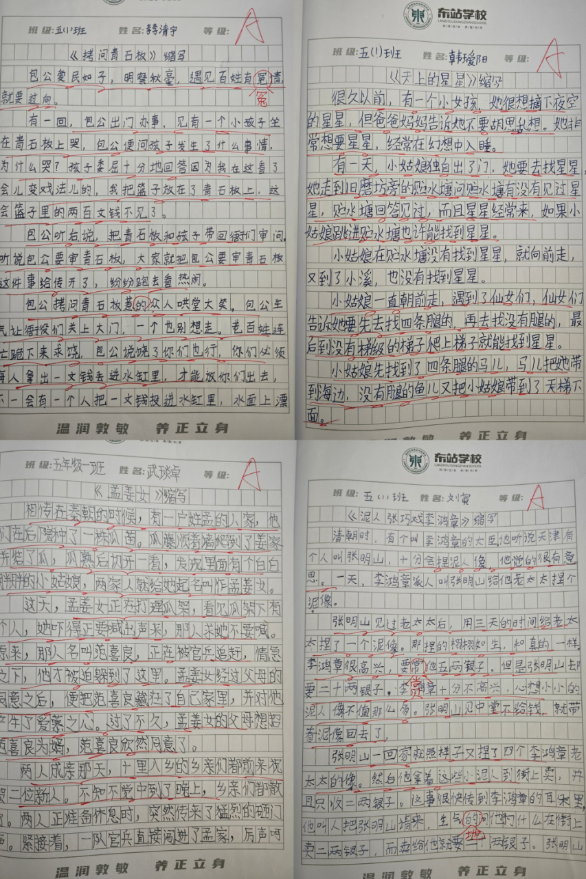 班级:五(1)班 姓名:韩清宇 等级: A
《拷问青石板》缩写
包公爱民如子,明察秋毫,遇见百姓有冤情,
冤
就要过问。
有一回,包公出门办事,见有一个小孩子坐
在青石板上哭,包公便问孩子发生了什么事情,
为什么哭?孩子委屈十分地回答因为我在这看了
会儿变戏法儿的,我把篮子放在了青石板上,这
会篮子里的两百文钱不见了。
包公听后说,把青石板和孩子带回衙门审问,
听说包公要审青石板,大家就把包公要审青石板
这件事给传开了,纷纷跑去看热闹。
包公拷问青石板惹的众人哄堂大笑。包公生
气让衙役们关上大门,一个也别想走。老百姓连
忙跪下来求饶,包公说饶了你们也行,你们必须
每人拿出一文钱丢进水缸里,才能放你们出去,
不一会有一个人把一文钱投进水缸里,水面上漂
温润敦敏 养正立身
东站学校
班级:五(1)班 姓名:韩瑷阳 等级: A
《天上的星星》缩写
很久以前,有一个小女孩,她很想摘下夜空
的星星,但爸爸妈妈告诉她不要胡思乱想。她非
常想要星星,经常在幻想中入睡。
有一天,小姑娘独自出了门,她要去找星星,
她走到旧磨坊旁的贮水塘问贮水塘有没有见过星
星,贮水塘回答见过,而且星星经常来,如果小
姑娘跳进贮水塘也许能找到星星。
小姑娘在贮水塘没有找到星星,就向前走,
又到了小溪,也没有找到星星。
小姑娘一直朝前走,遇到了仙女们,仙女们
告诉她要先去找四条腿的,再去找没有腿的,最
后到没有梯级的梯子爬上梯子就能找到星星。
小姑娘先找到了四条腿的马儿,马儿把她带
到海边,没有腿的鱼儿又把小姑娘带到了天梯下
面。
班级:五年级一班 姓名:武琰焯 等级: A
《孟姜女》缩写
相传在秦朝的时候,有一户姓孟的人家,他
们在后院种了一棵瓜苗,瓜藤顺着墙爬到了姜家
并结了瓜,瓜熟后切开一看,发现里面有个白白
胖胖的小姑娘,两家人就给她起名叫作孟姜女。
这天,孟姜女正在打理瓜架,看见瓜架下有
个人,她吓得正要喊出声来,那人求她不要喊。
原来,那人名叫范喜良,正在被官兵追赶,情急
之下,他才被迫躲到了这里。孟姜女经过父母的
同意之后,便把范喜良藏在了自己家里,并对他
产生了爱慕之心。过了不久,孟姜女的父母想招
范喜良为婿,范喜良欣然同意了。
两人成亲那天,十里八乡的乡亲们都前来祝
贺二位新人。不知不觉中到了晚上,乡亲们都散
了。两人正准备休息时,突然传来了猛烈的砸门
声。紧接着,一队官兵直接闯进了孟家,厉声喝
温润敦敏 养正立身
东站学校
班级:五(1)班 姓名:刘寅 等级: A
《泥人张巧戏李鸿章》缩写
清朝时,有个叫李鸿章的大臣他听说天津有
个人叫张明山,十分会捏泥人像,
思。一天,李鸿章派人叫张明山给他老太太捏个
泥像。
张明山见过老太太后,用三天的时间给老太
太捏了一个泥像。那捏的栩栩如生,和真的一样。
李鸿章很高兴,要赏他五两银子。但是张明山却
赏
要二十两银子。李鸿章十分不高兴,心想小小的
泥人像不值那么多。张明山见中堂不给钱,就带
着泥像回去了。
张明山一回家就照样子又捏了四个李鸿章老
太太的像。然后他拿着这些小泥人到街上卖,并
且只收二两银子。这事很快传到李鸿章的耳朵里,
他叫人把张明山请来,生气的问他为什么在街上
地
卖二两银子,而卖给他却要二十两银子。张明山
温润敦敏 养正立身